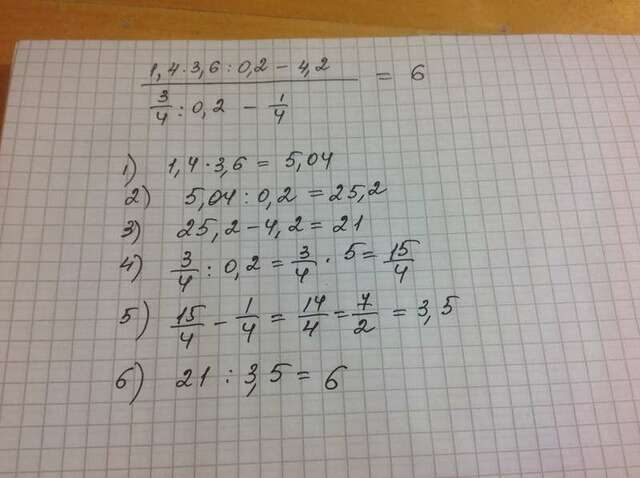 1,4·3,6:0,2-4,2
3/4:0,2-1/4 = 6
1) 1,4·3,6=5,04
2) 5,04:0,2=25,2
3) 25,2-4,2=21
4) 3/4:0,2=3/4·5=15/4
5) 15/4-1/4=14/4=7/2=3,5
6) 21:3,5=6